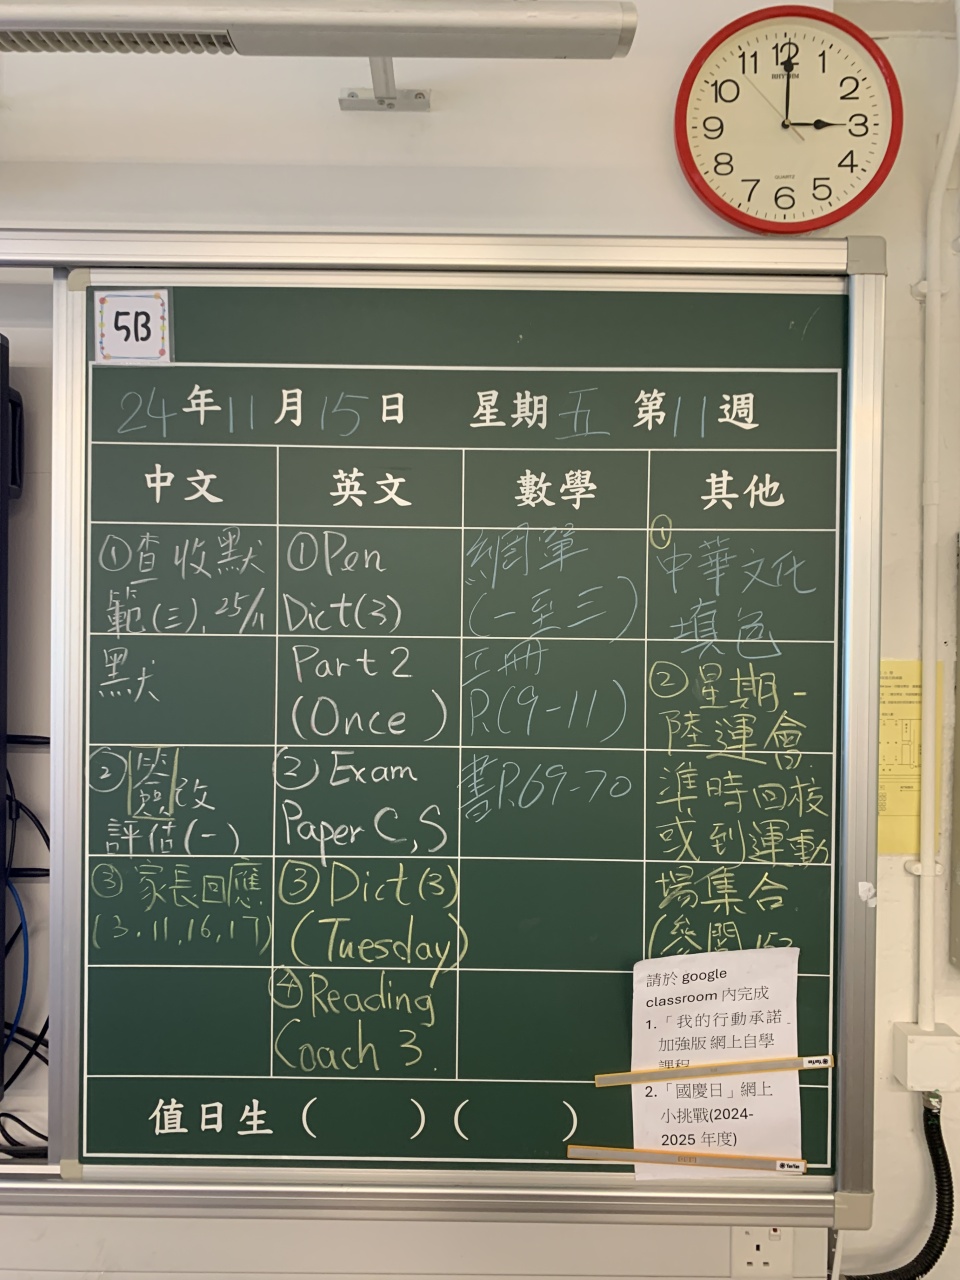 12
1
2
3
4
5
6
7
8
9
10
11
RHYTHM
QUARTZ
5B
24年11月15日 星期五 第11週
中文
英文
數學
其他
①查收默
範(三), 25/11
默
②改
評估(一)
③家長回應
(3.11,16,17)
①Pen
Dict(3)
Part 2
(Once)
②Exam
Paper C,S
③Dict(3)
(Tuesday)
④Reading
Coach 3.
網單
(一至三)
工冊
P.(9-11)
書P.69-70
①
中華文化
填色
②星期一
陸運會
準時回校
或到運動
場集合
(參閱 152
請於 google
classroom 內完成
1.「我的行動承諾
加強版 網上自學
課程
2.「國慶日」網上
小挑戰(2024-
2025 年度)
值日生 ( ) ( )